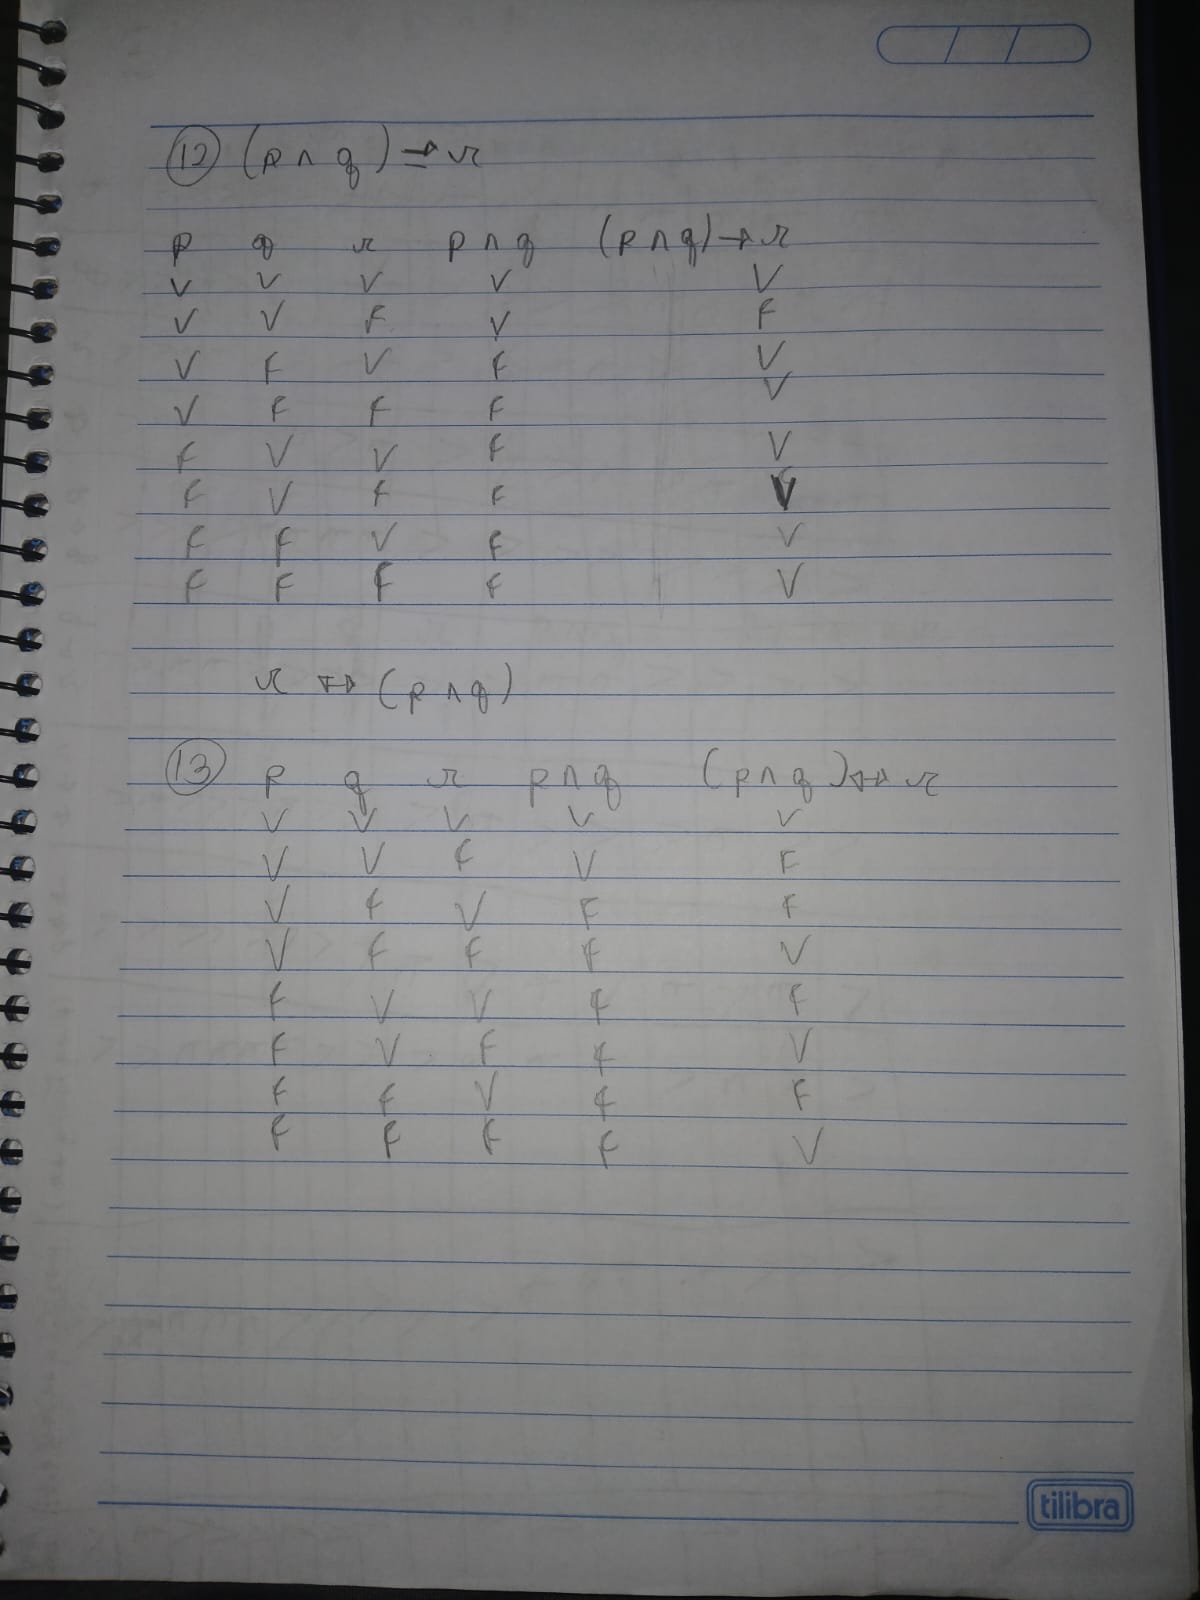 12 (p ∧ q) → r
p q r p ∧ q (p ∧ q) → r
V V V V V
V V F V F
V F V F V
V F F F V
F V V F V
F V F F V
F F V F V
F F F F V
r ↔ (p ∧ q)
13 p q r p ∧ q (p ∧ q) ↔ r
V V V V V
V V F V F
V F V F F
V F F F V
F V V F F
F V F F V
F F V F F
F F F F V
tilibra